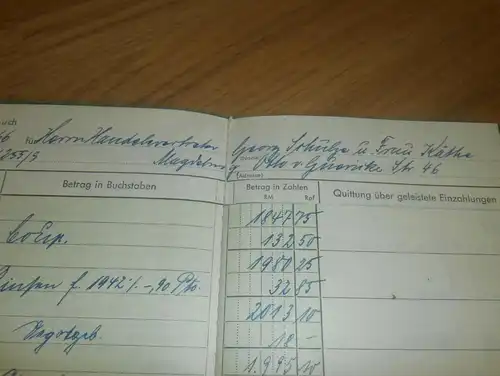 uch
46 für Herrn Handelsvertreter Georg Schulze u. Frau Käthe
255/3 Magdeburg, Otto v. Guericke Str 46
(Name)
(Adresse)
Betrag in Buchstaben Betrag in Zahlen Quittung über geleistete Einzahlungen
RM Rpf
1847 75
132 50
Coup. 1980 25
Zinsen f. 1942 ./. -,90 Pto. 32 85
2013 10
18 -
1.995 10